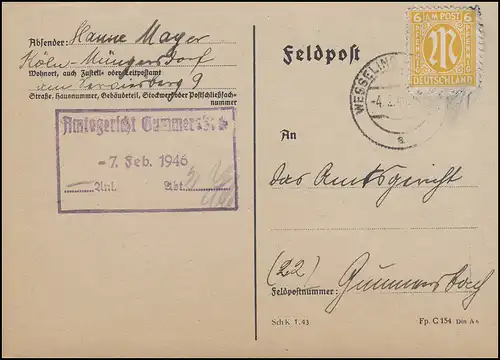 Absender: Hanne Mayer
Köln-Müngersdorf
Wohnort, auch Zustell- oder Leitpostamt
am 9
Straße, Hausnummer, Gebäudeteil, Stockwerk oder Postschließfach-
nummer
Amtsgericht Gummersbach
-7. Feb. 1946
Anl. Abt.
Feldpost
6 AM POST 6
M
DEUTSCHLAND
WESSELING
-4.2.
a
An
das Amtsgericht
(22) Gummersbach
Feldpostnummer:
Sch K 1. 43
Fp. C 154 Din A 6